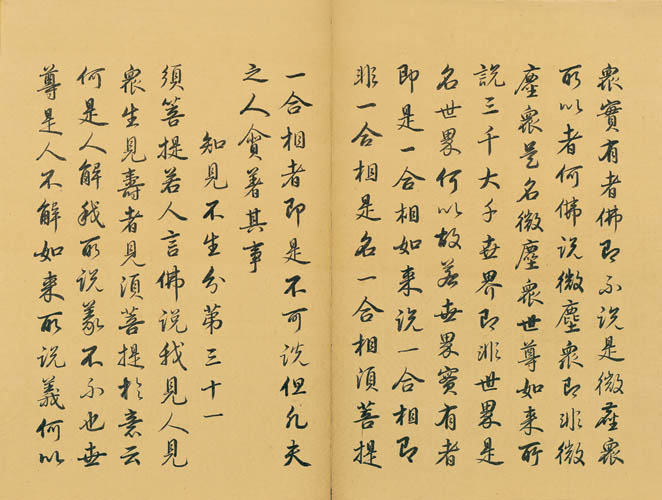 眾實有者佛即不說是微塵眾
所以者何佛說微塵眾即非微
塵眾是名微塵眾世尊如來所
說三千大千世界即非世界是
名世界何以故若世界實有者
即是一合相如來說一合相即
非一合相是名一合相須菩提
一合相者即是不可說但凡夫
之人貪著其事
知見不生分第三十一
須菩提若人言佛說我見人見
眾生見壽者見須菩提於意云
何是人解我所說義不不也世
尊是人不解如來所說義何以